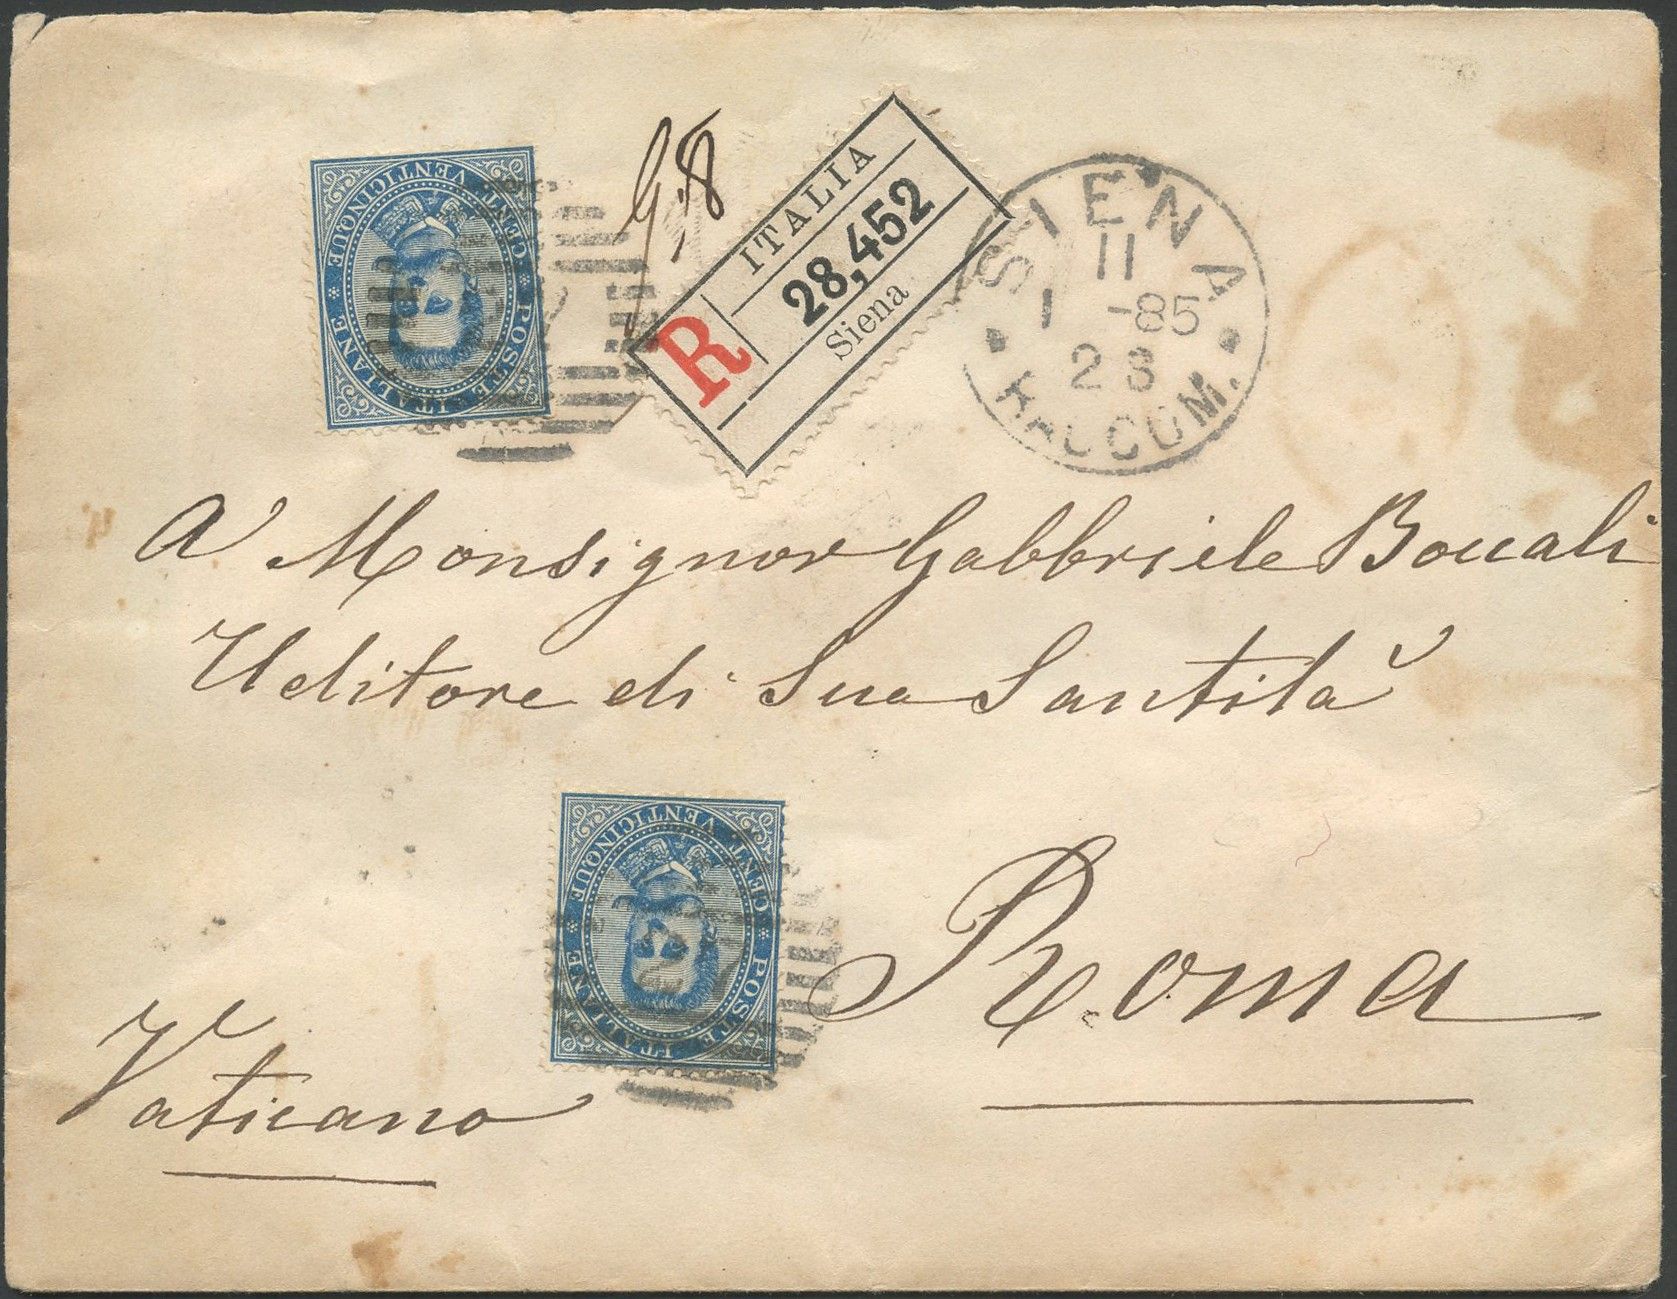 CENT. VENTICINQUE
* POSTE ITALIANE *
R
ITALIA
28,452
Siena
SIENA
11
1 -85
23
RACCOM.
A Monsignor Gabbriele Boccali
Uditore di Sua Santità
CENT. VENTICINQUE
* POSTE ITALIANE *
Roma
Vaticano